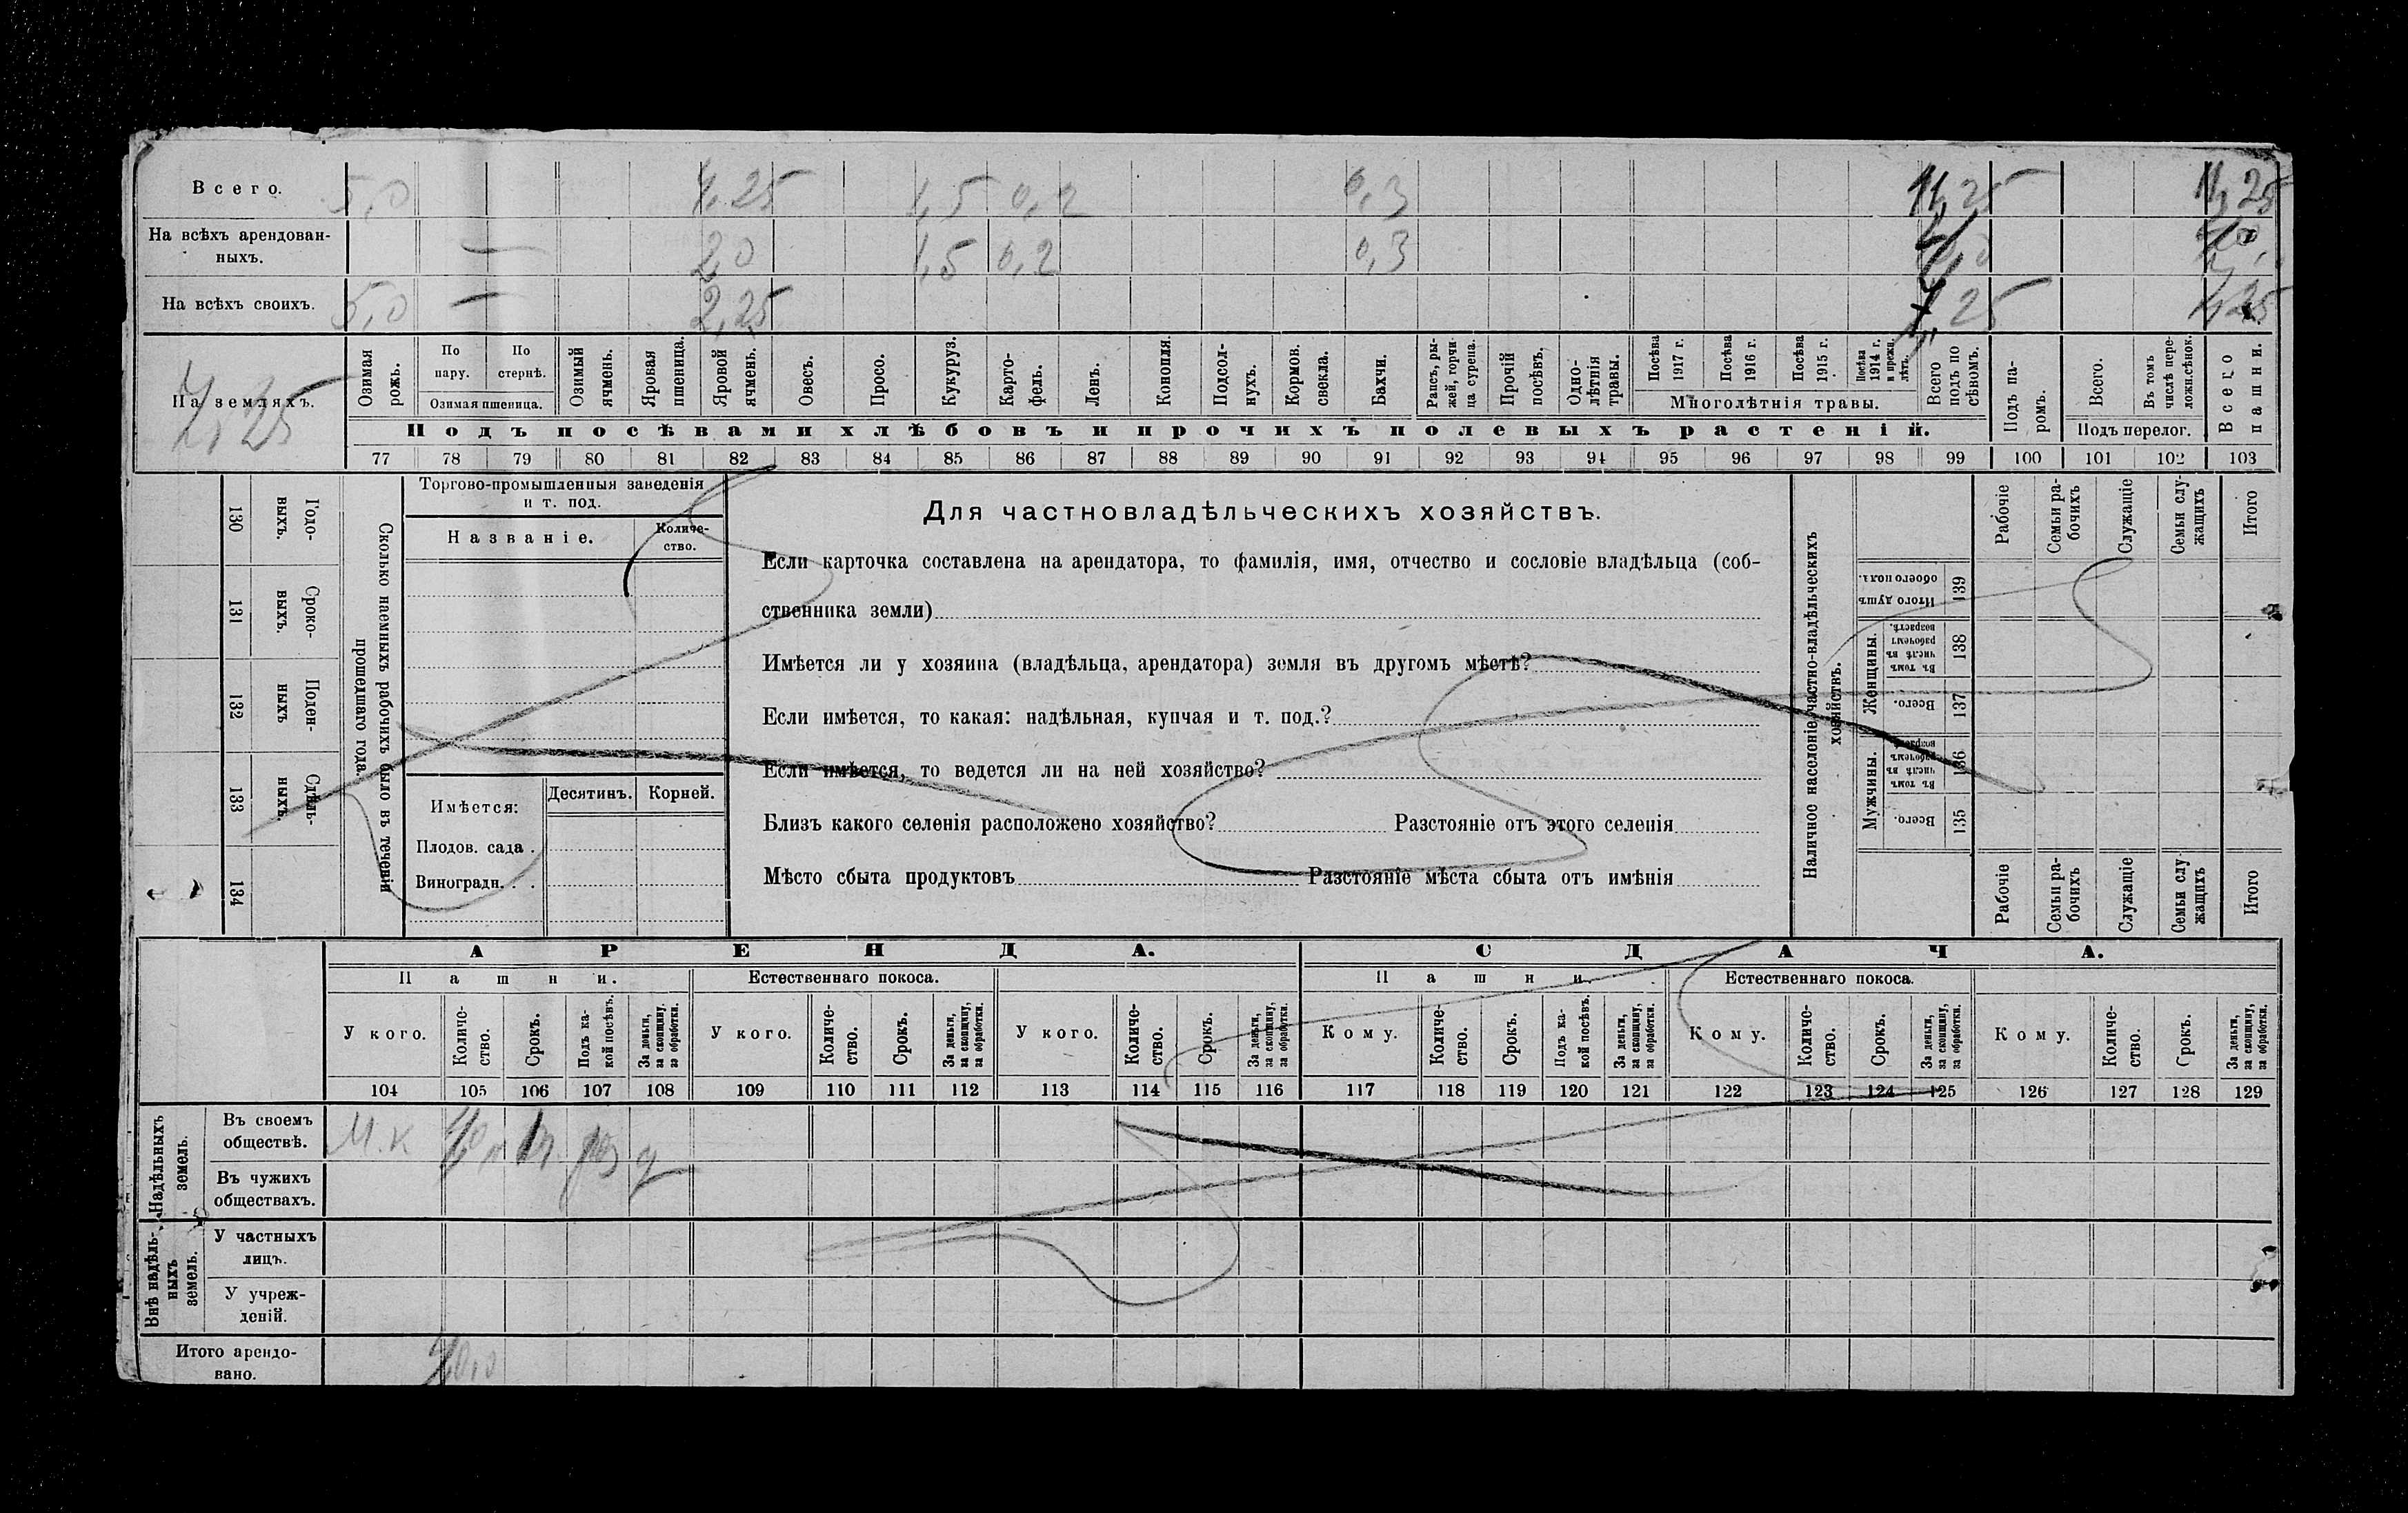 Всего. 5,0 4,25 1,5 0,2 0,3 11,25 11,25
На всѣхъ арендован-
ныхъ. — 2,0 1,5 0,2 0,3
На всѣхъ своихъ. 5,0 — 2,25 7,25 7,25
На земляхъ.
7,25
Озимая рожь.
По пару.
По стернѣ.
Озимая пшеница.
Озимый ячмень.
Яровая пшеница.
Яровой ячмень.
Овесъ.
Просо.
Кукуруз.
Карто-
фель.
Ленъ.
Конопля.
Подсол-
нухъ.
Кормов. свекла.
Бахчи.
Рапсъ, ры-
жей, горчи-
ца сурепа.
Прочій посѣвъ.
Одно-
лѣтнія травы.
Посѣва 1917 г.
Посѣва 1916 г.
Посѣва 1915 г.
Посѣва 1914 г. и прежн. лѣтъ.
Многолѣтнія травы.
Всего подъ по
сѣвомъ.
Подъ па-
ромъ.
Всего.
Въ томъ числѣ пере-
ложн.сѣнок.
Подъ перелог.
Всего пашни.
Подъ посѣвами хлѣбовъ и прочихъ полевыхъ растеній.
77 78 79 80 81 82 83 84 85 86 87 88 89 90 91 92 93 94 95 96 97 98 99 100 101 102 103
130 Годо-
выхъ.
131 Сроко-
выхъ.
132 Поден-
ныхъ
133 Сдѣль-
ныхъ.
134
Сколько наемныхъ рабочихъ было въ теченіи
прошедшаго года.
Торгово-промышленныя заведенія
и т. под.
Названіе.
Количе-
ство.
Имѣется:
Десятинъ. Корней.
Плодов. сада .
Виноградн. . .
Для частновладѣльческихъ хозяйствъ.
Если карточка составлена на арендатора, то фамилія, имя, отчество и сословіе владѣльца (соб-
ственника земли)
Имѣется ли у хозяина (владѣльца, арендатора) земля въ другомъ мѣстѣ?
Если имѣется, то какая: надѣльная, купчая и т. под.?
Если имѣется, то ведется ли на ней хозяйство?
Близъ какого селенія расположено хозяйство? Разстояніе отъ этого селенія
Мѣсто сбыта продуктовъ Разстояніе мѣста сбыта отъ имѣнія
Наличное населеніе частно-владѣльческихъ
хозяйствъ.
Итого душъ обоего пол. 139
Женщины.
Въ томъ числѣ въ рабочемъ возрастѣ. 138
Всего. 137
Мужчины.
Въ томъ числѣ въ рабочемъ возрастѣ. 136
Всего. 135
Рабочіе
Семьи ра-
бочихъ
Служащіе
Семьи слу-
жащихъ
Итого
Рабочіе
Семьи ра-
бочихъ
Служащіе
Семьи слу-
жащихъ
Итого
АРЕНДА. СДАЧА.
Пашни. Естественнаго покоса. Пашни. Естественнаго покоса.
У кого.
Количе-
ство.
Срокъ.
Подъ ка-
кой посѣвъ.
За деньги,
за скопщину,
за обработки.
У кого.
Количе-
ство.
Срокъ.
За деньги,
за скопщину,
за обработки.
У кого.
Количе-
ство.
Срокъ.
За деньги,
за скопщину,
за обработки.
Кому.
Количе-
ство.
Срокъ.
Подъ ка-
кой посѣвъ.
За деньги,
за скопщину,
за обработки.
Кому.
Количе-
ство.
Срокъ.
За деньги,
за скопщину,
за обработки.
Кому.
Количе-
ство.
Срокъ.
За деньги,
за скопщину,
за обработки.
104 105 106 107 108 109 110 111 112 113 114 115 116 117 118 119 120 121 122 123 124 125 126 127 128 129
Надѣльныхъ
земель.
Въ своемъ
обществѣ. М.к
Въ чужихъ
обществахъ.
Внѣ надѣль-
ныхъ
земель.
У частныхъ
лицъ.
У учреж-
деній.
Итого арендо-
вано.